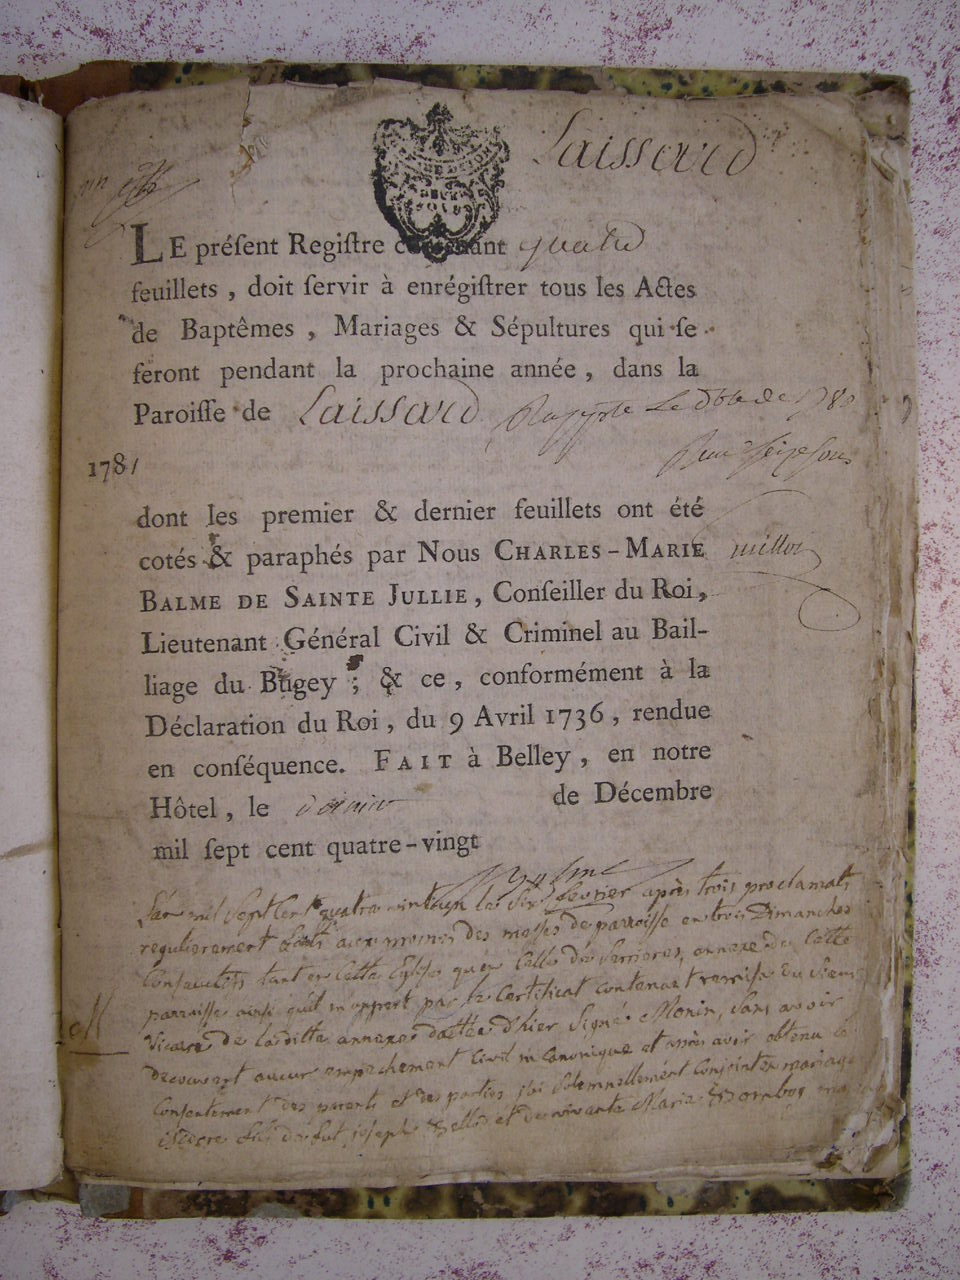 Laissard
LE préſent Regiſtre contenant quatre
feuillets, doit ſervir à enrégiſtrer tous les Actes
de Baptêmes, Mariages & Sépultures qui ſe
feront pendant la prochaine année, dans la
Paroiſſe de Laissard
1781
dont les premier & dernier feuillets ont été
cotés & paraphés par Nous CHARLES-MARIE
BALME DE SAINTE JULLIE, Conſeiller du Roi,
Lieutenant Général Civil & Criminel au Bail-
liage du Bugey; & ce, conformément à la
Déclaration du Roi, du 9 Avril 1736, rendue
en conſéquence. FAIT à Belley, en notre
Hôtel, le dernier de Décembre
mil ſept cent quatre-vingt
L'an mil sept cent quatre vint un le six fevrier après trois proclamats
regulierement faits aux prones des messes de paroisse en trois Dimanches
Consecutifs tant en Cette Eglise qu'en Celle de Serrieres, annexe de Cette
parroisse ainsi qu'il m'apport par le Certificat contenant remise du Sieur
Vicaire de laditte annexe dattée d'hier Signé Monin, sans avoir
decouvert aucun empechement Civil ni Canonique et après avoir obtenu le
Consentement des parents et des parties j'ai solemnellement Conjoint en mariage
isidore fils de fut joseph et de vivante Marie